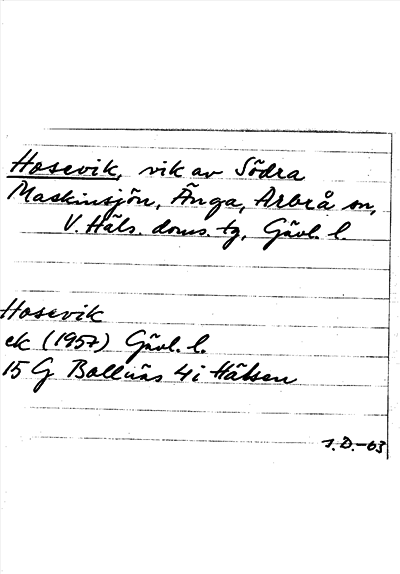 Hosevik, vik av Södra
Maskinsjön, Änga, Arbrå sn,
V. Häls. doms. tg, Gävl. l.
Hosevik
ek (1957) Gävl. l.
15 G Bollnäs 4 i Hälsen
S.D.-63